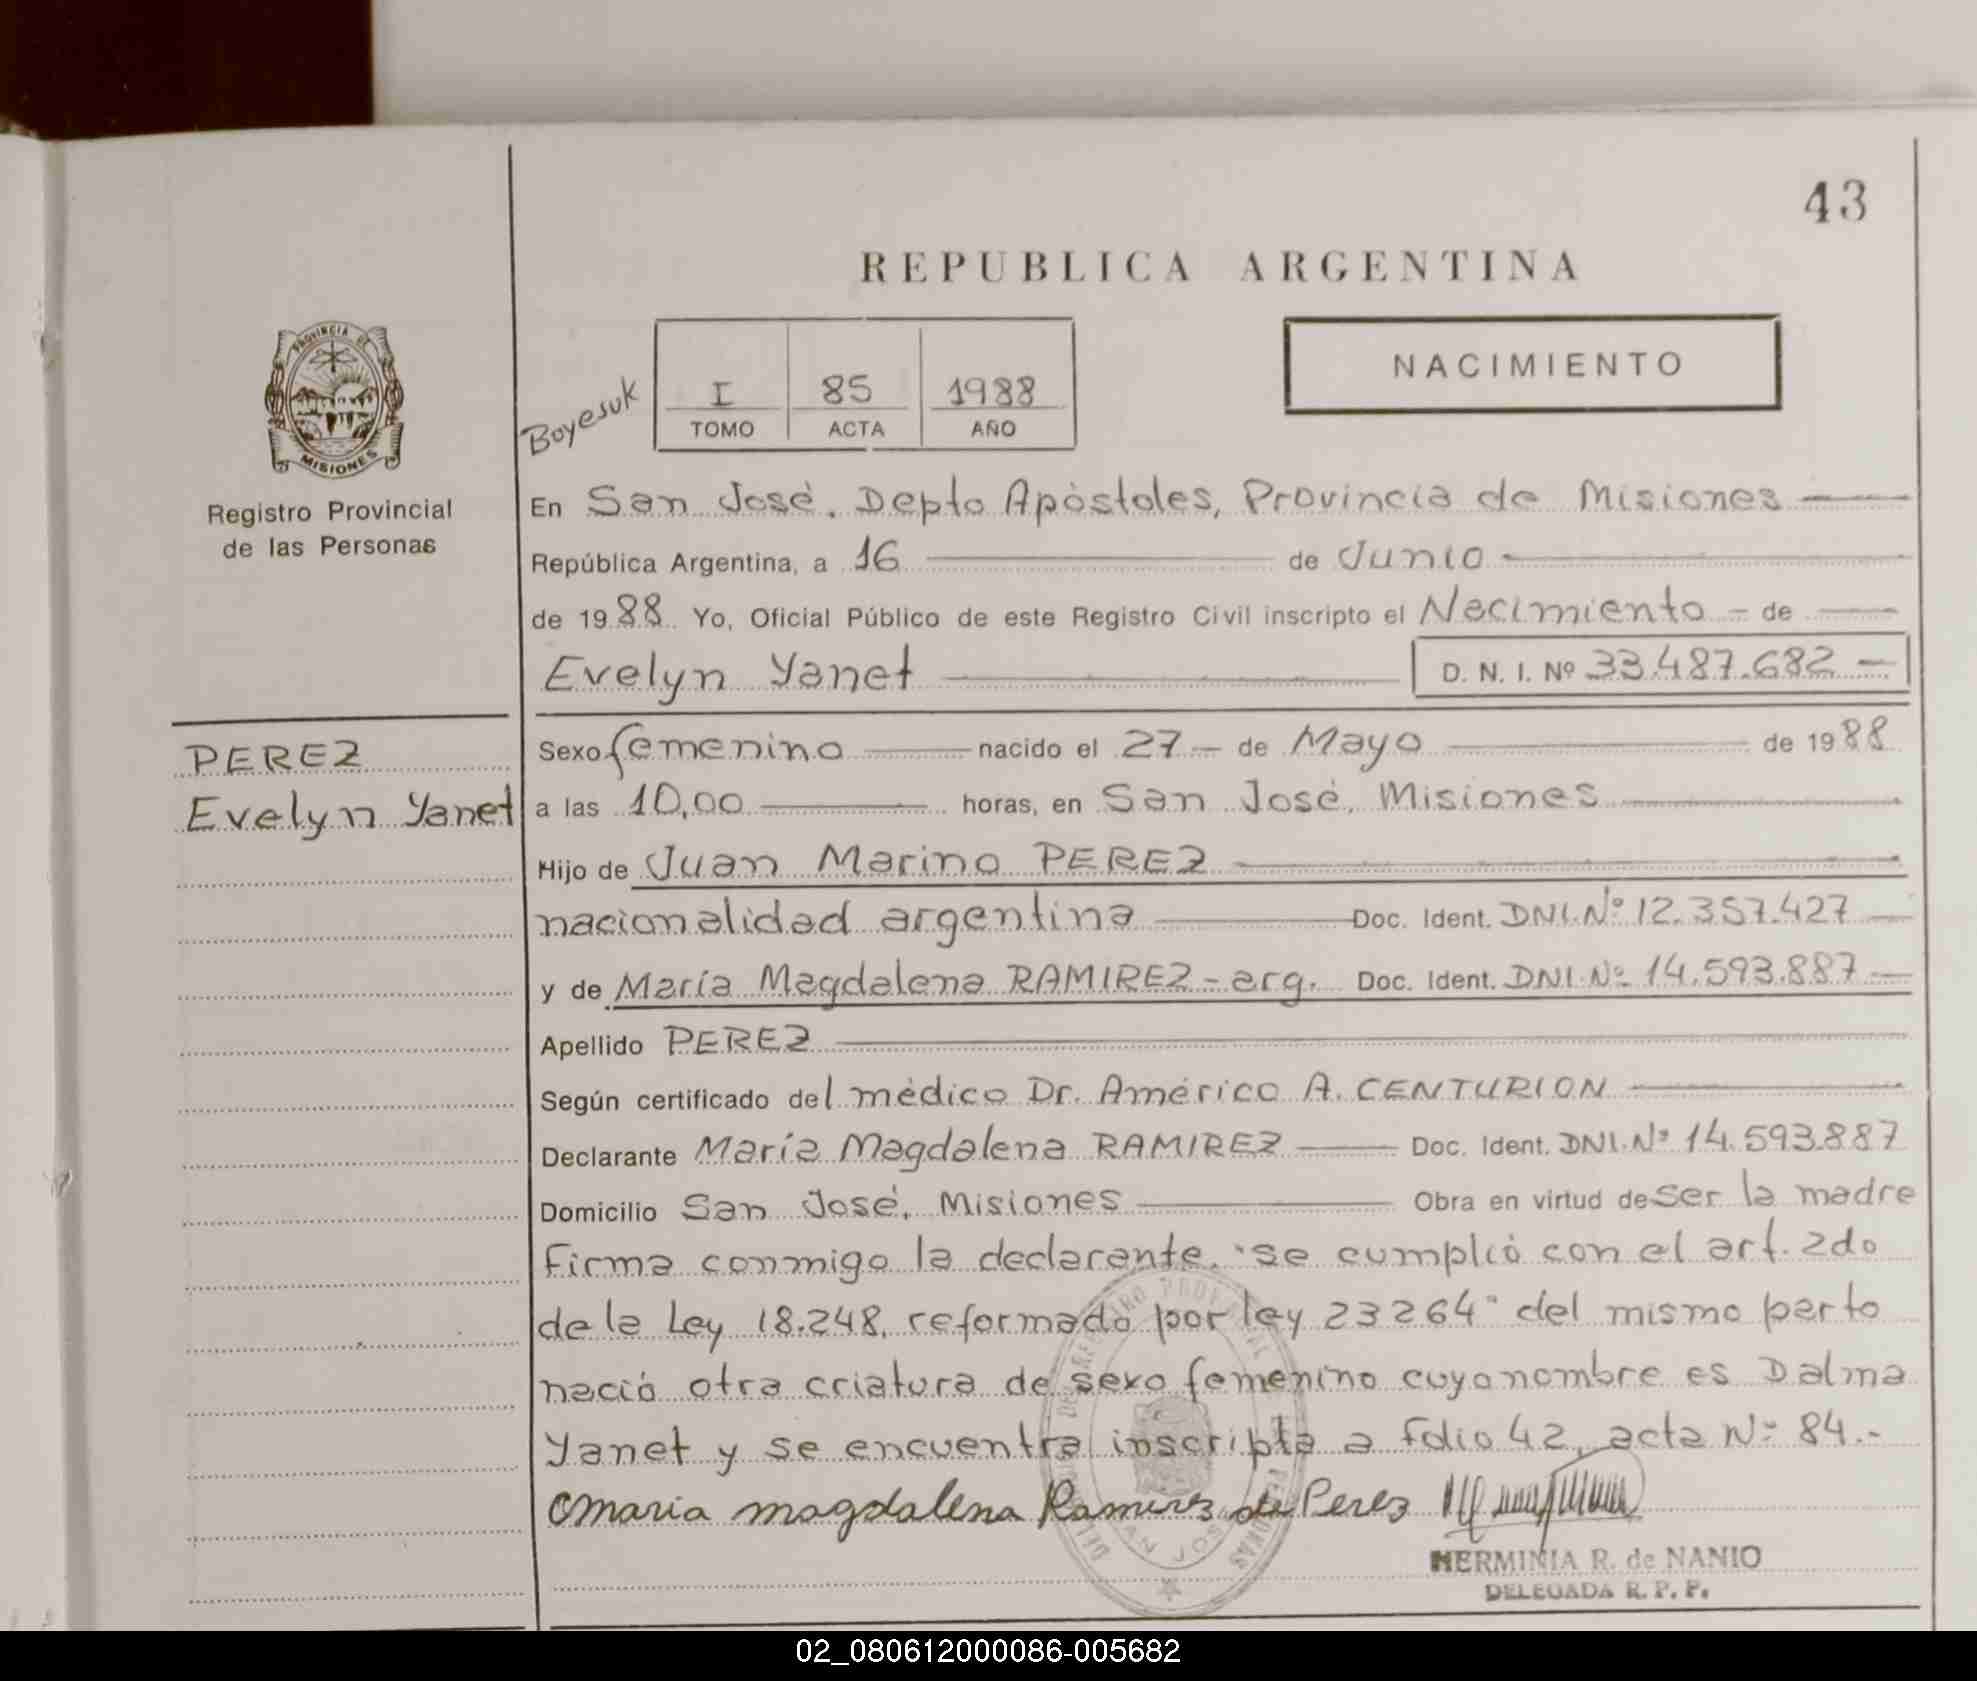 43
REPUBLICA ARGENTINA
PROVINCIA DE
MISIONES
Registro Provincial
de las Personas
Boyesuk
I 85 1988
TOMO ACTA AÑO
NACIMIENTO
En San José. Depto Apóstoles, Provincia de Misiones
República Argentina, a 16 de Junio
de 1988 Yo, Oficial Público de este Registro Civil inscripto el Nacimiento - de
Evelyn Yanet D. N. I. Nº 33.487.682 -
PEREZ
Evelyn Yanet
Sexo femenino nacido el 27 - de Mayo de 1988
a las 10,00 horas, en San José, Misiones
Hijo de Juan Marino PEREZ
nacionalidad argentina Doc. Ident. DNI.Nº 12.357.427
y de María Magdalena RAMIREZ - arg. Doc. Ident. DNI.Nº 14.593.887
Apellido PEREZ
Según certificado del médico Dr. Américo A. CENTURION
Declarante María Magdalena RAMIREZ Doc. Ident. DNI.Nº 14.593.887
Domicilio San José, Misiones Obra en virtud de ser la madre
firma conmigo la declarante. "se cumplió con el art. 2do
de la Ley 18.248, reformado por ley 23264" del mismo parto
nació otra criatura de sexo femenino cuyo nombre es Dalma
Yanet y se encuentra inscripta a folio 42, acta Nº 84.-
Maria magdalena Ramirez de Perez
HERMINIA R. de NANIO
DELEGADA R. P. P.
02_080612000086-005682